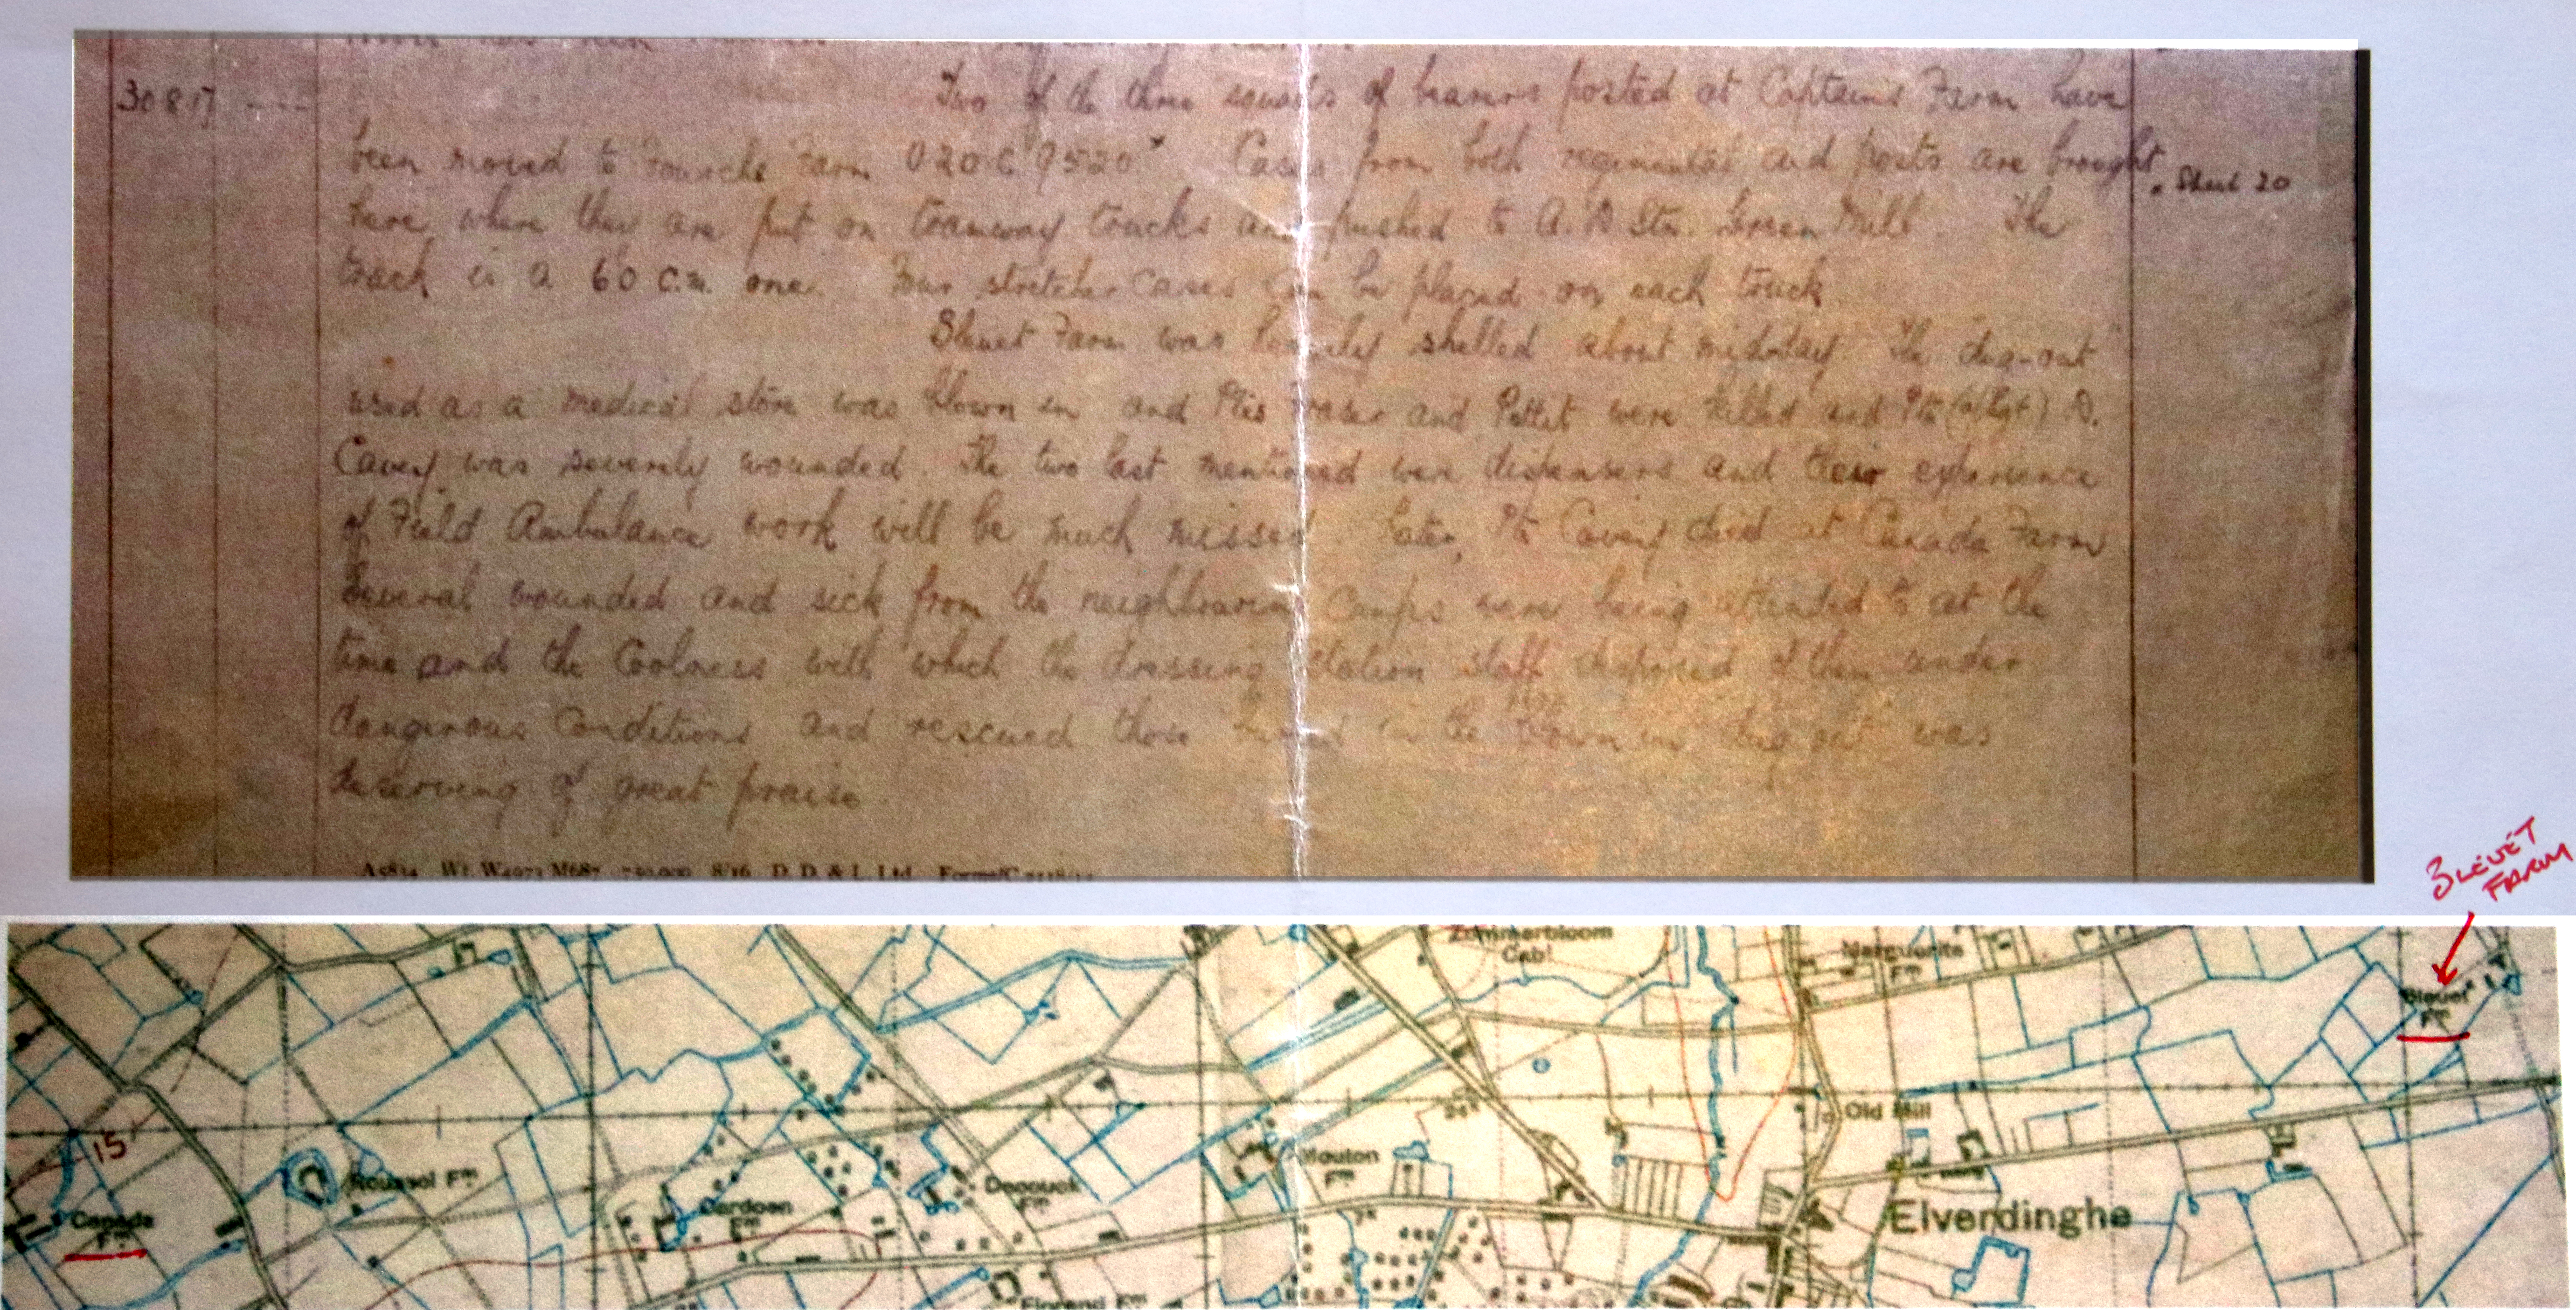 30 8 17 Two of the three squads of bearers posted at Captains Farm have
been moved to Farm U20 C 9520 Cases from both regimental aid posts are brought
* Sheet 20
here where they are put on tramway trucks and pushed to A. D Stn. Green Mill. The
track is a 60 c.m. one. Four stretcher cases can be placed on each truck
Bleuet Farm was heavily shelled about midday. The "dug-out"
used as a medical store was blown in and Ptes Fraser and Pettit were killed and Pte (a/Sgt) D.
Cavey was severely wounded. The two last mentioned were dispensers and their experience
of Field Ambulance work will be much missed. Later, Pte Cavey died at Canada Farm
Several wounded and sick from the neighbouring camps were being attended to at the
time and the coolness with which the dressing station staff disposed of them under
dangerous conditions and rescued those buried in the blown in dug out was
deserving of great praise.
A5834 Wt. W4973 M687 750,000 8/16 D. D. & L. Ltd. Forms/C.2118/13
BLEUET
FARM
Zommerbloom
Cabt
Marguerite
Fm
Bleuet
Fm
Old Mill
15
Roussel Fm
Mouton
Fm
Canada
Fm
Cardoen
Fm
Decouck
Fm
Elverdinghe
Florend Fm